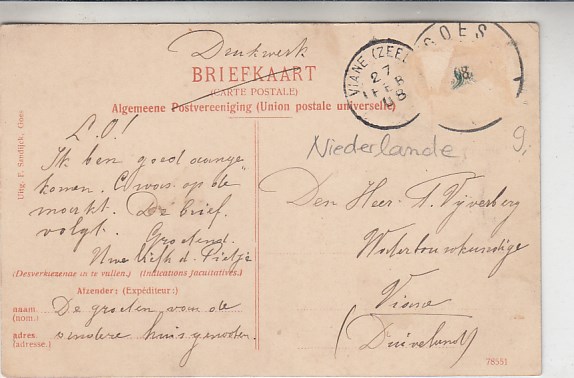 Drukwerk
BRIEFKAART
(CARTE POSTALE)
Algemeene Postvereeniging (Union postale universelle)
VIANE (ZEE
27
FEB
08
GOES
08
Niederlande
9,-
Uitg. F. Sandijck, Goes
L.O!
Ik ben goed aange
komen. C was op de
markt. De brief
volgt. Groetend.
Uwe liefh d. Pietje
(Desverkiezende in te vullen.) (Indications facultatives.)
Afzender: (Expéditeur:)
naam
(nom.)
De groeten van de
adres
(adresse.)
andere huisgenooten.
Den Heer T. Vijverberg
Waterbouwkundige
Viane
(Duiveland)
78551